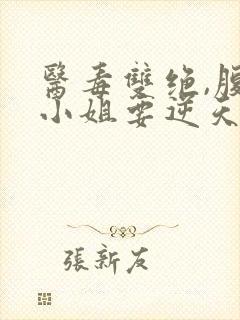 醫毒雙绝,腹
小姐要逆天
張新友